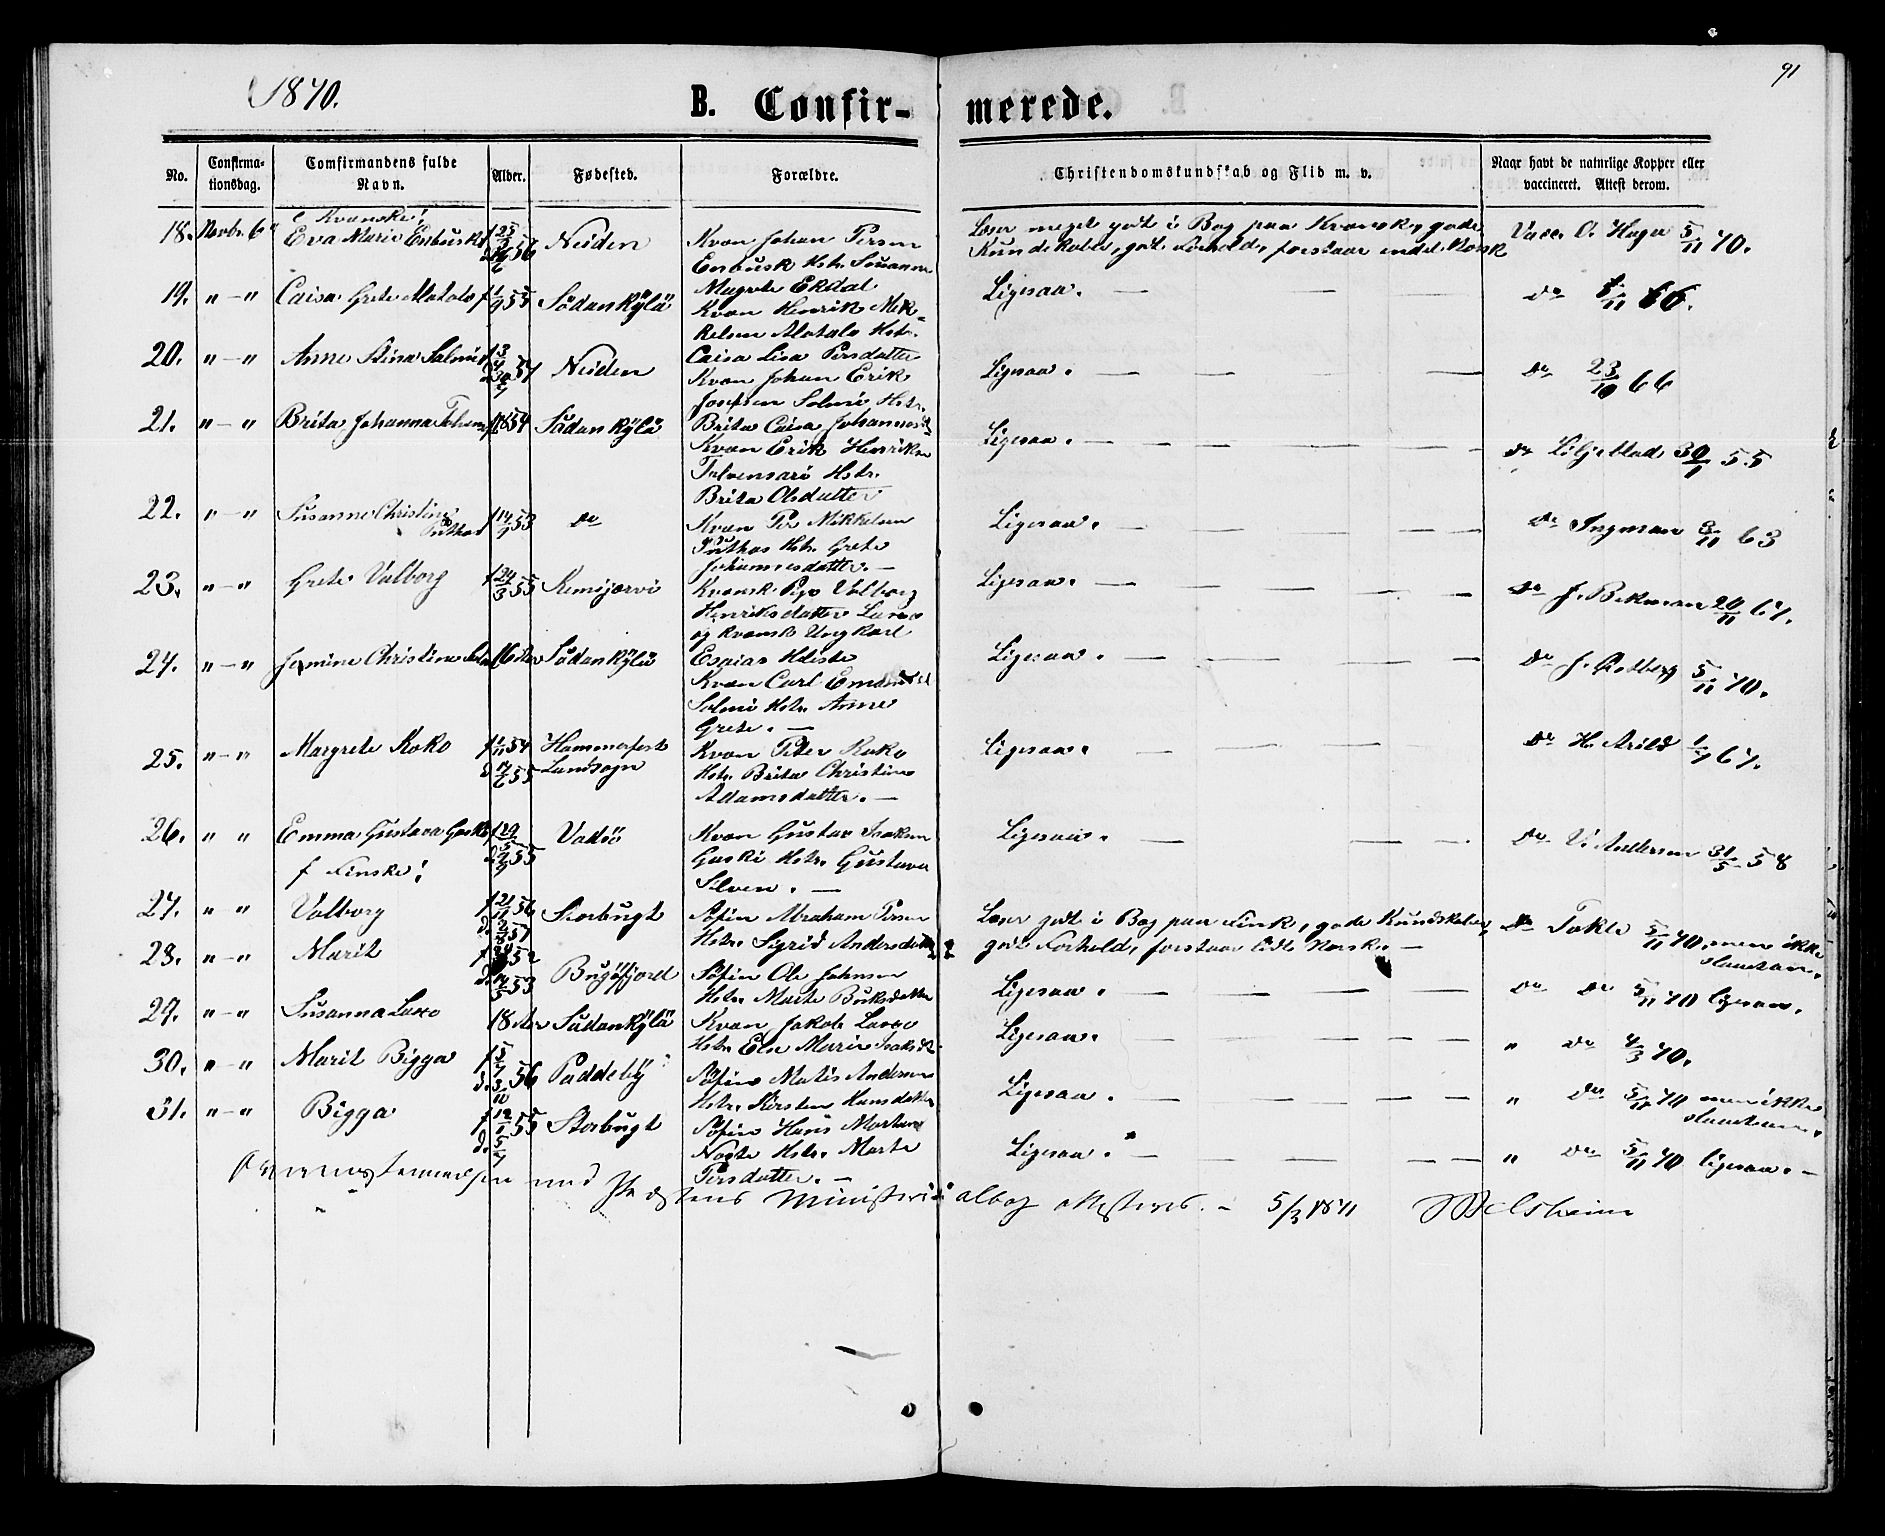 91
1870.
B. Confir-
merede.
No.
Confirma-
tionsdag.
Comfirmandens fulde
Navn.
Alder.
Fødested.
Forældre.
Christendomskundskab og Flid m. v.
Naar havt de naturlige Kopper eller
vaccineret. Attest derom.
Kvænske:
18. Novbr. 6 Eva Marie Enbusk Neiden Kvæn Johan Persen
Enbusk Hstr. Susanne
Magrete Ekdal
Læser meget godt i Bog paa Kvænsk, gode
Kundskaber, godt Forhold, forstaar endel Norsk
Vacc. O. Hager 5/11 70.
19. " — " Caisa Grete Alatalo f 1/9 55 Sodankylä
Kvæn Henrik Mik-
kelsen Alatalo Hstr.
Caisa Lisa Persdatter
Ligesaa. — — — —
do 8/11 66.
20. " — " Anne Stina Salmi Neiden
Kvæn Johan Erik
Josefsen Salmi Hstr.
Brita Caisa Johannesd.
Ligesaa. — — — —
do 23/10 66
21. " — " Brita Johanna Sodankylä
Kvæn Erik Henriksen
Talvensari Hstr.
Brita Olsdatter
Ligesaa. — — — —
do Liljeblad 30/1 55
22. " — " Susanne Christine f 14/9 53 do
Kvæn Per Mikkelsen
Hstr. Grete
Johannesdatter. —
Ligesaa. — — — —
do Ingman 3/11 63
23. " — " Grete Valborg f 24/3 55 Kemijærvi
Kvænsk Pige Valborg
Henriksdatter
og kvænsk Ungkarl
Esaias
Ligesaa. — — — —
do J. Bekman 20/11 67.
24. " — " Jemine Christine 16 Aar Sodankylä
Kvæn Carl Emanuel
Salmi Hstr. Anne
Grete. —
Ligesaa. — — — —
do J. Østberg 5/11 70.
25. " — " Margrete Koko f 1/11 54
d 17/6 55
Hammerfest
Landsogn
Kvæn Peter Koko
Hstr. Brita Christine
Adamsdatter. —
Ligesaa. — — — —
do H. Arild 1/7 67.
26. " " Emma Gustava Vadsö
Kvæn Gustav Isaksen
Hstr. Gustava
Silven. —
Ligesaa. — — — —
do V. Andersen 31/5 58
f Finske:
27. " " Valborg f 21/11 56 Storbugt
Søfin Abraham Persen
Hstr. Sigrid Andersdatter
Læser godt i Bog paa Finsk, gode Kundskaber,
godt Forhold, forstaar lidt Norsk. —
do Takle 5/11 70 men ikke
28. " — " Marit Bugøfjord
d. 17/5 53
Søfin Ole Johnsen
Hstr. Marte
Ligesaa. — — — —
do do 5/11 70 ligesaa.
29. " — " Susanna 18 Aar Sodankylä
Kvæn Jakob
Hstr. Elen Marie Isaksdt.
Ligesaa. — — — —
" do 4/3 70.
30. " — " Marit Bigga Paddeby
Søfin Matis Andersen
Hstr. Kirsten Hansdatter
Ligesaa. — — — —
" do 5/11 70 men ikke
31. " — " Bigga Storbugt
Søfin Hans Mortens
Hstr. Marte
Persdatter. —
Ligesaa. — — — —
" do 5/11 70 ligesaa. —
Overensstemmelsen med Præstens Ministerialbog attesteres. — 5/3 1871